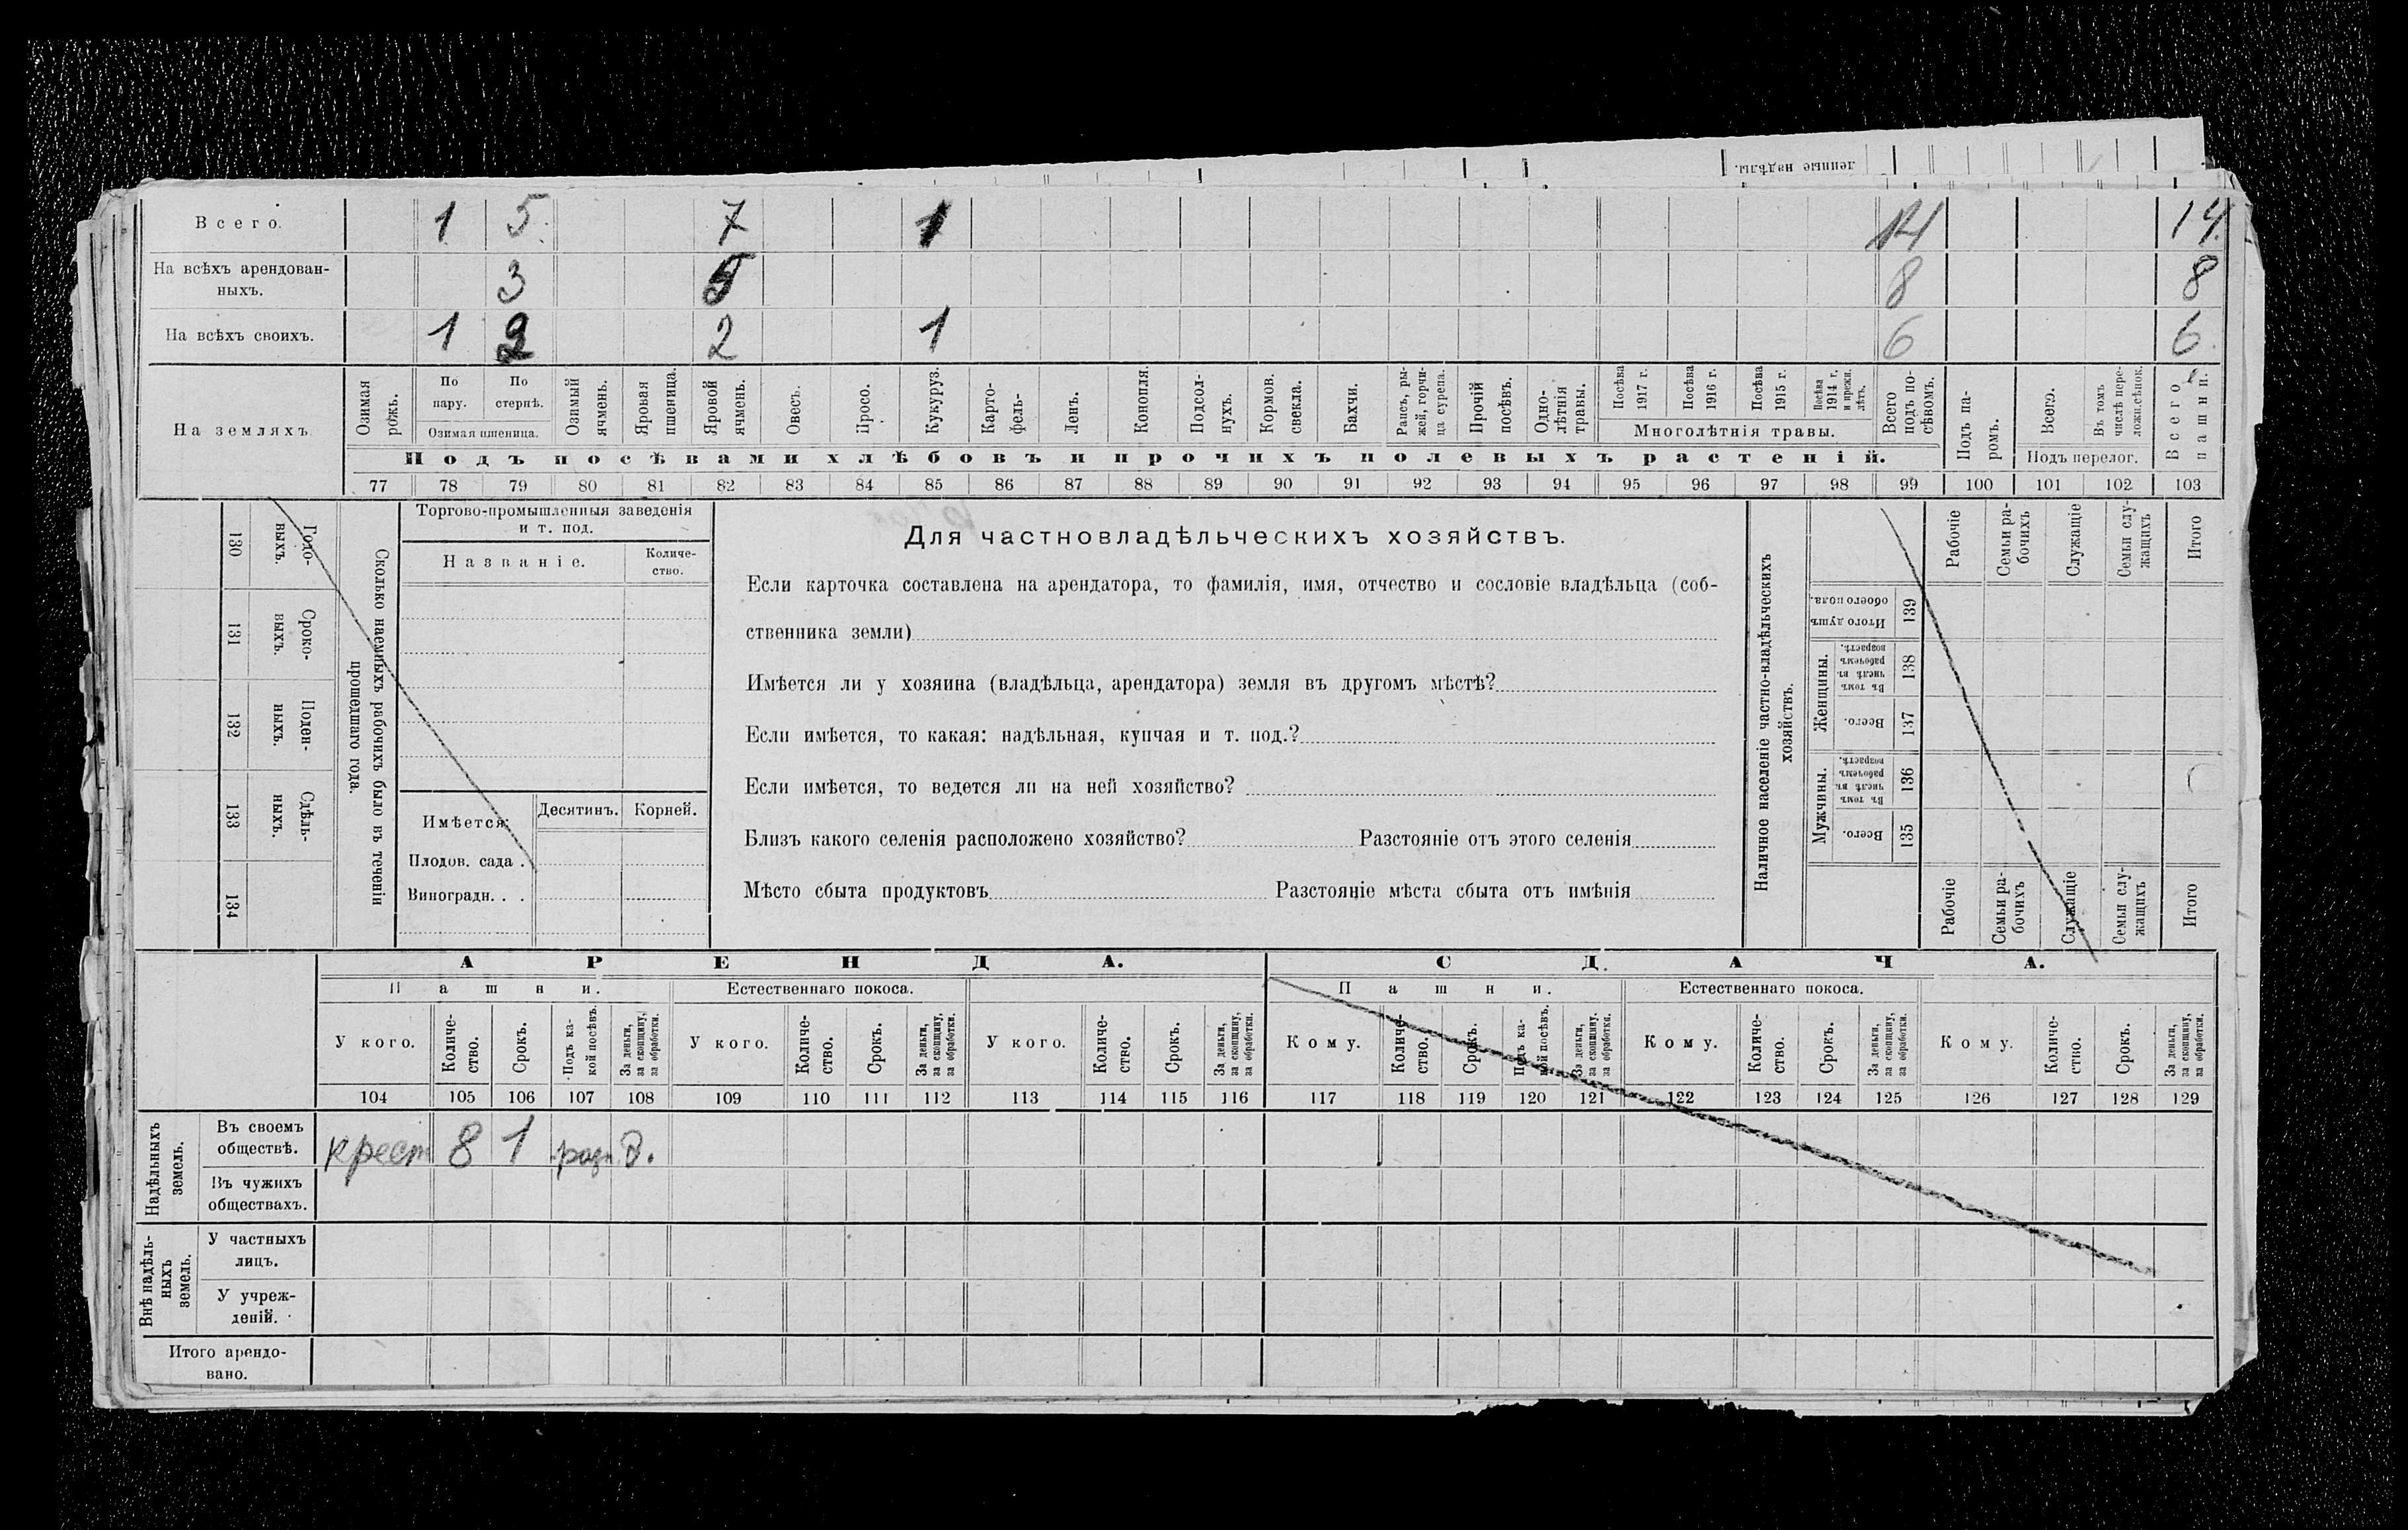 ленные надѣлы.
Всего. 1 5. 7 1 14 14.
На всѣхъ арендован-
ныхъ. 3 5 8 8
На всѣхъ своихъ. 1 2 2 1 6 6.
На земляхъ.
Озимая рожь.
По пару.
По стернѣ.
Озимая пшеница.
Озимый ячмень.
Яровая пшеница.
Яровой ячмень.
Овесъ.
Просо.
Кукуруз.
Карто-
фель-
Ленъ.
Конопля.
Подсол-
нухъ.
Кормов.
свекла.
Бахчи.
Рапсъ, ры-
жей, горчи-
ца сурепа.
Прочій
посѣвъ.
Одно-
лѣтнія
травы.
Посѣва
1917 г.
Посѣва
1916 г.
Посѣва
1915 г.
Посѣва
1914 г.
и прежн.
лѣтъ.
Многолѣтнія травы.
Всего
подъ по-
сѣвомъ.
Подъ па-
ромъ.
Всего.
Въ томъ
числѣ пере-
ложн.сѣнок.
Подъ перелог.
Всего
пашни.
Подъ посѣвами хлѣбовъ и прочихъ полевыхъ растеній.
77 78 79 80 81 82 83 84 85 86 87 88 89 90 91 92 93 94 95 96 97 98 99 100 101 102 103
130 Годо-
выхъ.
131 Сроко-
выхъ.
132 Поден-
ныхъ.
133 Сдѣль-
ныхъ.
134
Сколько наемныхъ рабочихъ было въ теченіи
прошедшаго года.
Торгово-промышленныя заведенія
и т. под.
Названіе.
Количе-
ство.
Имѣется:
Десятинъ. Корней.
Плодов. сада .
Виноградн. . .
Для частновладѣльческихъ хозяйствъ.
Если карточка составлена на арендатора, то фамилія, имя, отчество и сословіе владѣльца (соб-
ственника земли)
Имѣется ли у хозяина (владѣльца, арендатора) земля въ другомъ мѣстѣ?
Если имѣется, то какая: надѣльная, купчая и т. под.?
Если имѣется, то ведется ли на ней хозяйство?
Близъ какого селенія расположено хозяйство? Разстояніе отъ этого селенія
Мѣсто сбыта продуктовъ Разстояніе мѣста сбыта отъ имѣнія
Наличное населеніе частно-владѣльческихъ
хозяйствъ.
Рабочіе
Семьи ра-
бочихъ
Служащіе
Семьи слу-
жащихъ
Итого
Итого душъ
обоего пола.
139
Женщины.
Въ томъ
числѣ въ
рабочемъ
возрастѣ.
138
Всего.
137
Мужчины.
Въ томъ
числѣ въ
рабочемъ
возрастѣ.
136
Всего.
135
Рабочіе
Семьи ра-
бочихъ
Служащіе
Семьи слу-
жащихъ
Итого
АРЕНДА.
СДАЧА.
Пашни.
Естественнаго покоса.
Пашни.
Естественнаго покоса.
У кого.
Количе-
ство.
Срокъ.
Подъ ка-
кой посѣвъ.
За деньги,
за скопщину,
за обработки.
У кого.
Количе-
ство.
Срокъ.
За деньги,
за скопщину,
за обработки.
У кого.
Количе-
ство.
Срокъ.
За деньги,
за скопщину,
за обработки.
Кому.
Количе-
ство.
Срокъ.
Подъ ка-
кой посѣвъ.
За деньги,
за скопщину,
за обработки.
Кому.
Количе-
ство.
Срокъ.
За деньги,
за скопщину,
за обработки.
Кому.
Количе-
ство.
Срокъ.
За деньги,
за скопщину,
за обработки.
104 105 106 107 108 109 110 111 112 113 114 115 116 117 118 119 120 121 122 123 124 125 126 127 128 129
Надѣльныхъ
земель.
Въ своемъ
обществѣ.
крест 8 1 разн д.
Въ чужихъ
обществахъ.
Внѣ надѣль-
ныхъ
земель.
У частныхъ
лицъ.
У учреж-
деній.
Итого арендо-
вано.